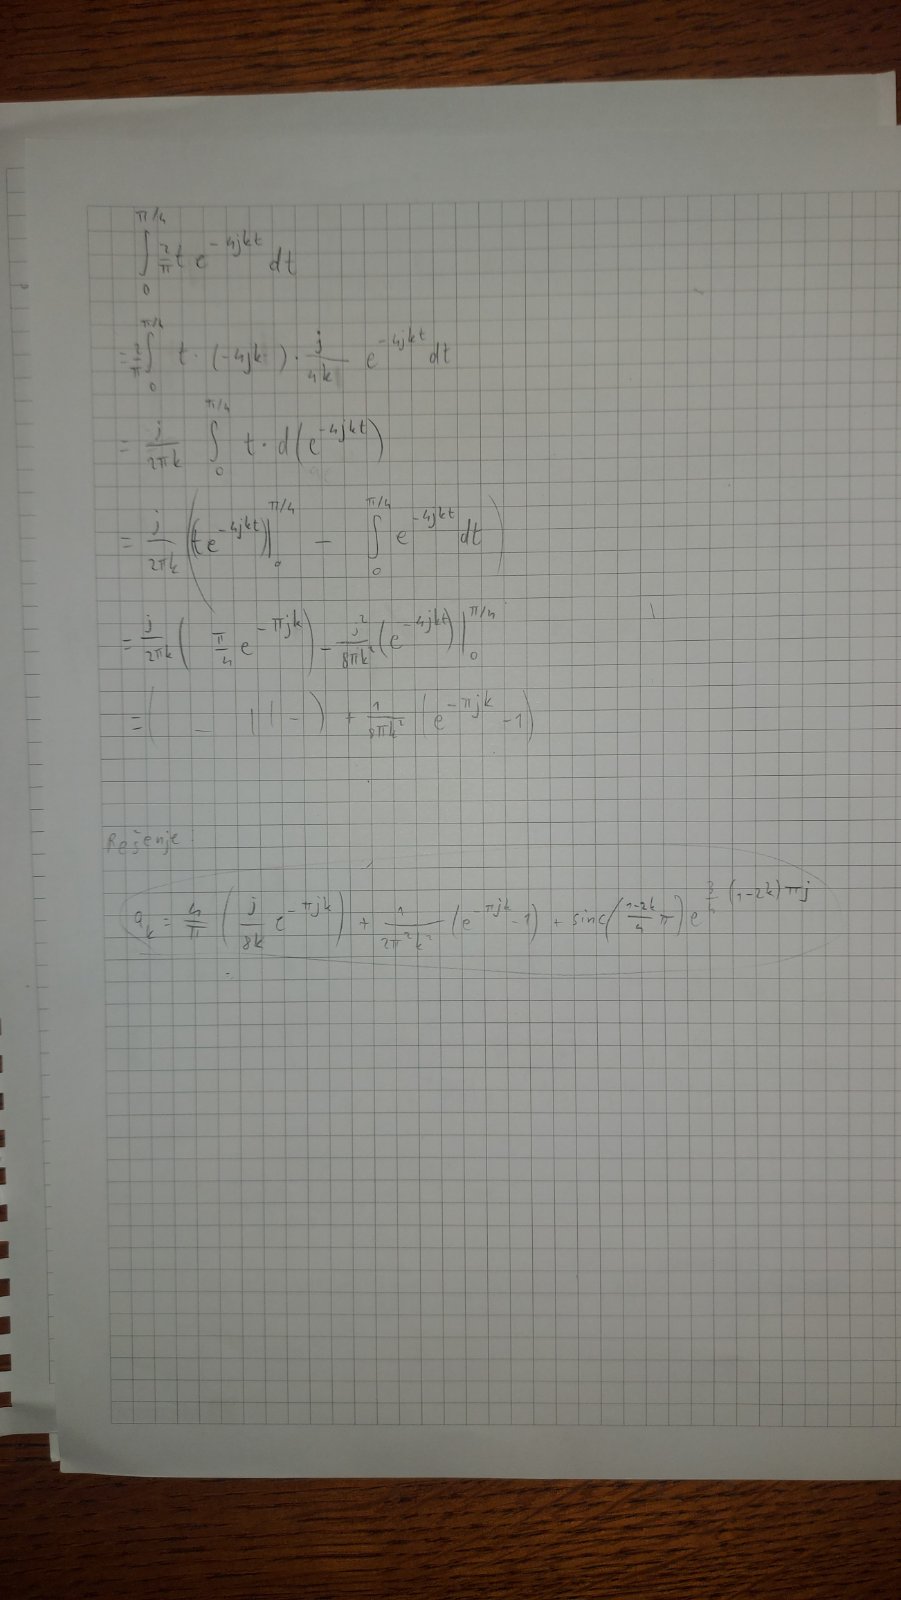 ∫₀^{π/4} 2/π t e^{-4jkt} dt
= 2/π ∫₀^{π/4} t · (-4jk) · j/4k e^{-4jkt} dt
= j/2πk ∫₀^{π/4} t · d(e^{-4jkt})
= j/2πk ((t e^{-4jkt})|₀^{π/4} - ∫₀^{π/4} e^{-4jkt} dt)
= j/2πk (π/4 e^{-πjk}) - j²/8πk² (e^{-4jkt})|₀^{π/4}
= ( — | | - ) + 1/8πk² (e^{-πjk} - 1)
Rešenje
a_k = 4/π (j/8k e^{-πjk}) + 1/2π²k² (e^{-πjk} - 1) + sinc((1-2k)/4 π) e^{(1-2k)πj}